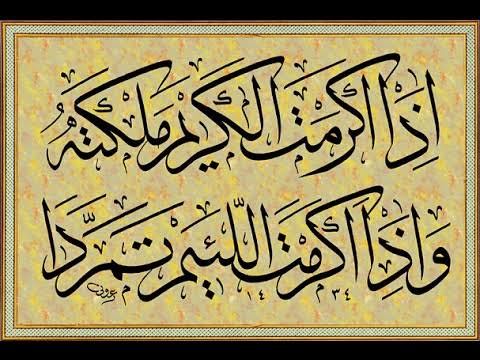 إذا أكرمت الكريم ملكته
وإذا أكرمت اللئيم تمردا
١٤٣٤